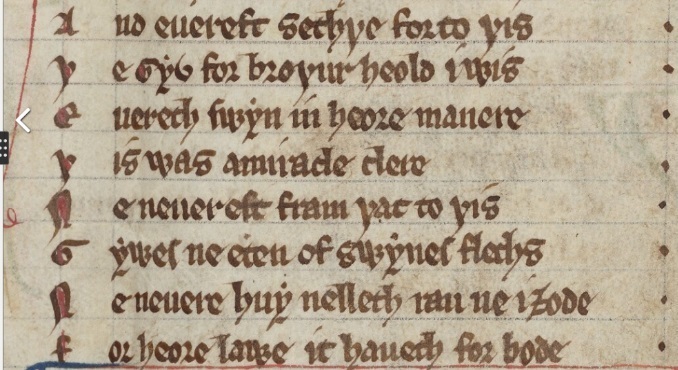 A nd euereft sethþe forto þis
þ e Gyv for broþur heold iwis
E uerech swyn in heore manere
þ is was amiracle clere
N e neuereft fram þat to þis
G ywes ne eten of swynes flechs
N e neuere huy nelleth ne
F or heore lawe it hauech for bode